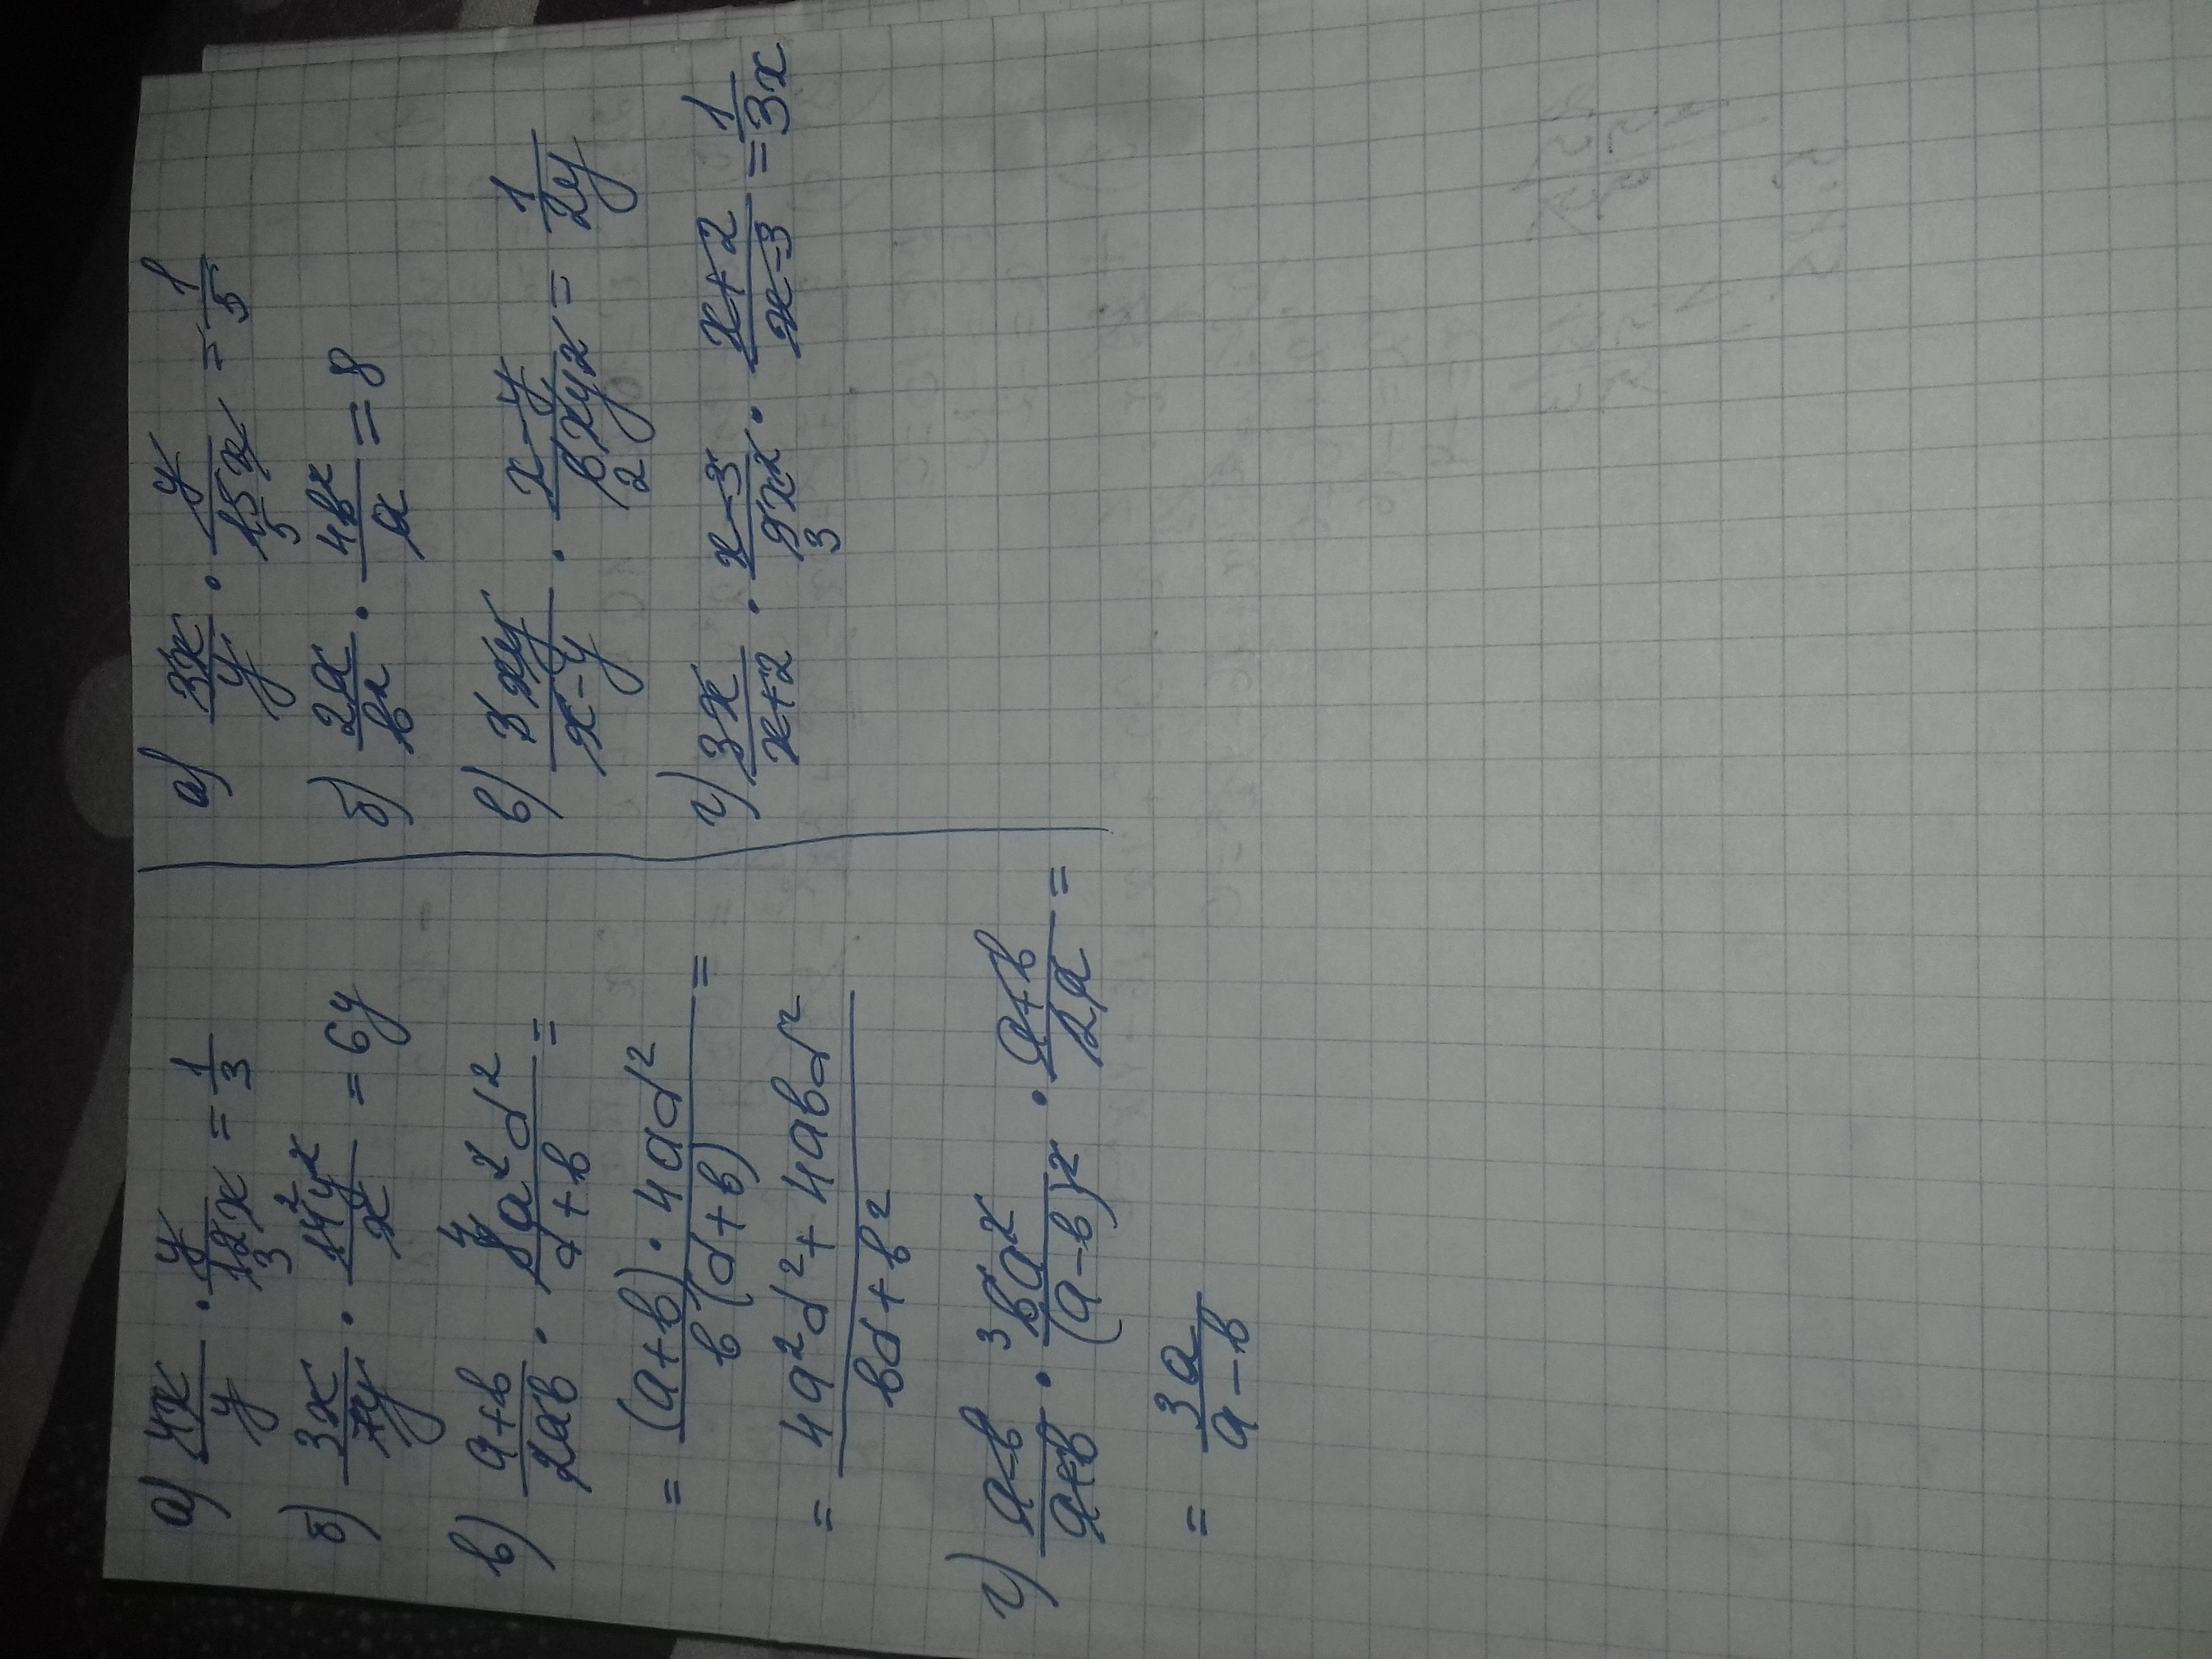 а) 4x/y · y/12x 3 = 1/3
б) 3x/7y · 14² y²/x = 6y
в) a+b/2ab · ⁴8a²d²/d+b =
= (a+b) · 4ad²/b(d+b) =
= 4a²d² + 4abd²/bd + b²
г) a-b/a+b · ³6a²/(a-b)² · a+b/2a =
= 3a/a-b
а) 3x/y · y/15x 5 = 1/5
б) 2a/b² · 4b²/a = 8
в) 3xy/x-y · x-y/6xy² 2 = 1/2y
г) 3x/x+2 · x-3/9x² 3 · x+2/x-3 = 1/3x